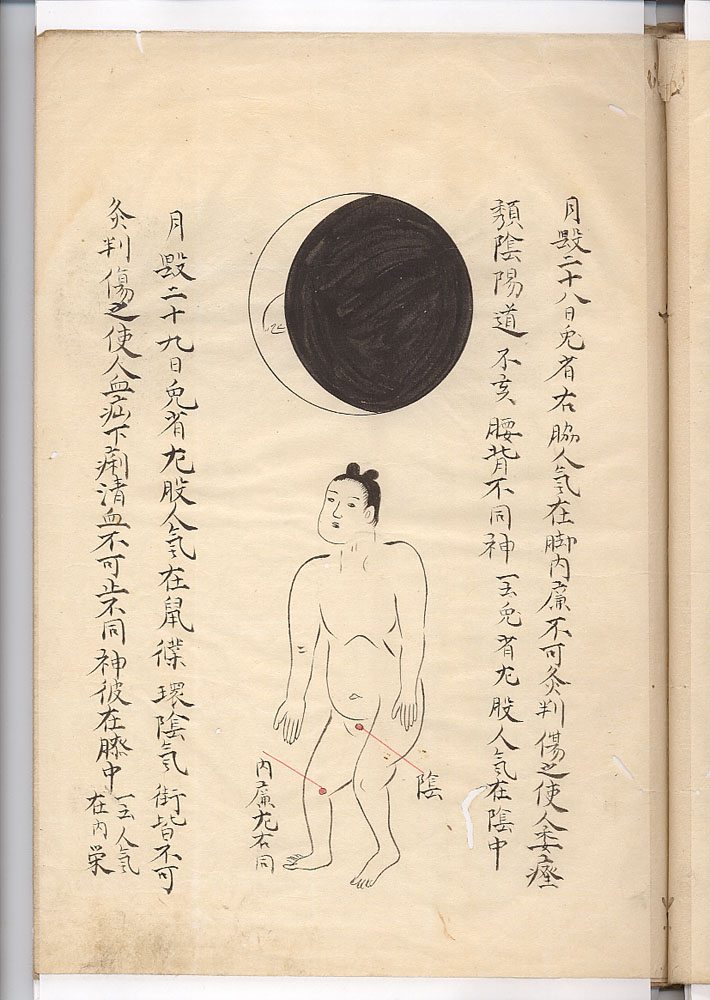 月毀二十八日兎省右脇人氣在脚内廉不可灸判傷之使人委痙
頽陰陽道不亥腰背不同神一云兎省尢股人氣在陰中
陰
内廉尢右同
月毀二十九日兎省尢股人氣在鼠環陰氣街皆不可
灸判傷之使人血疝下痢清血不可止不同神彼在膝中
一云人氣
在内栄